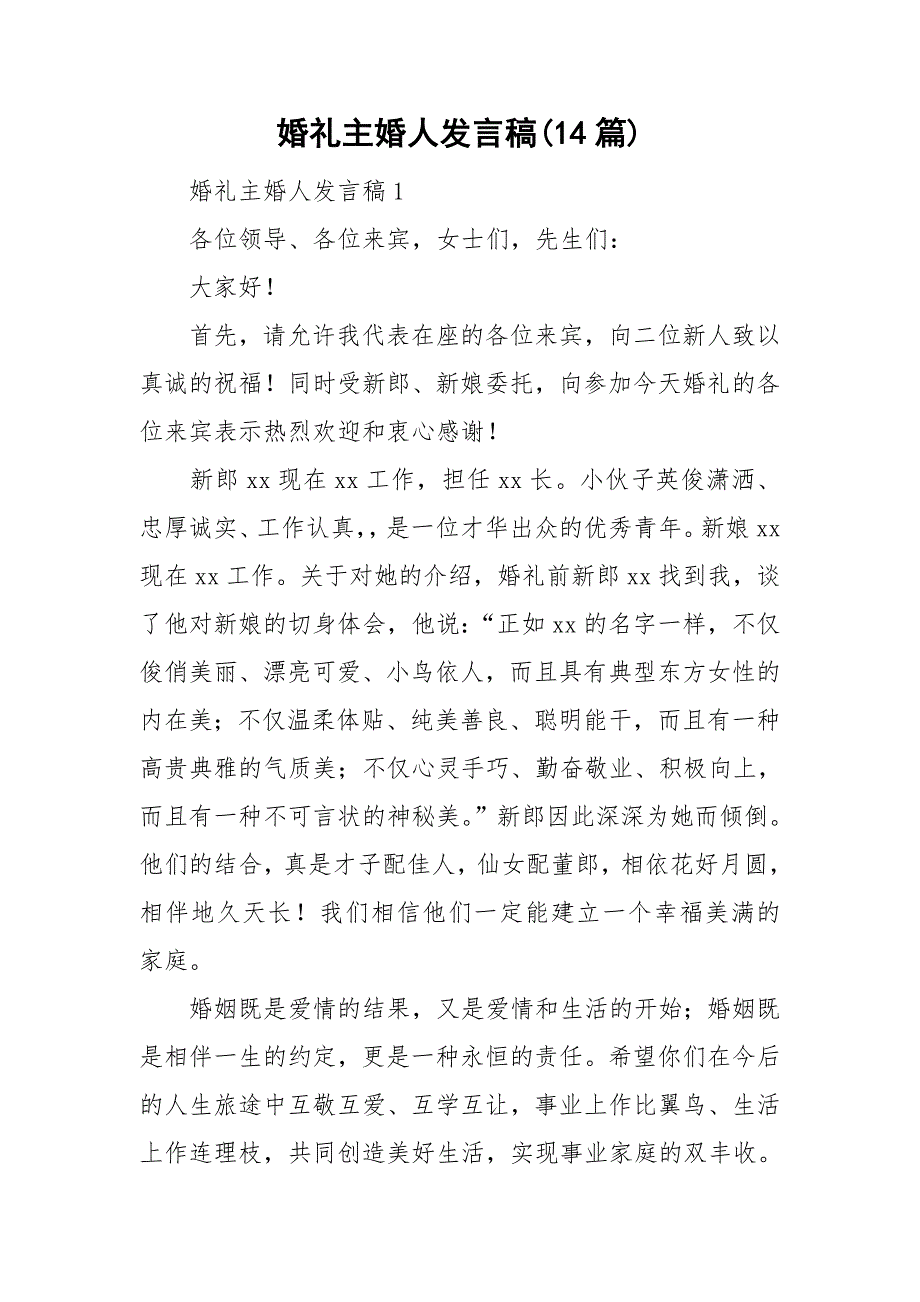 婚礼主婚人发言稿(14篇)
婚礼主婚人发言稿1
各位领导、各位来宾，女士们，先生们：
大家好！
首先，请允许我代表在座的各位来宾，向二位新人致以
真诚的祝福！同时受新郎、新娘委托，向参加今天婚礼的各
位来宾表示热烈欢迎和衷心感谢！
新郎xx现在xx工作，担任xx长。小伙子英俊潇洒、
忠厚诚实、工作认真，，是一位才华出众的优秀青年。新娘xx
现在xx工作。关于对她的介绍，婚礼前新郎xx找到我，谈
了他对新娘的切身体会，他说：“正如xx的名字一样，不仅
俊俏美丽、漂亮可爱、小鸟依人，而且具有典型东方女性的
内在美；不仅温柔体贴、纯美善良、聪明能干，而且有一种
高贵典雅的气质美；不仅心灵手巧、勤奋敬业、积极向上，
而且有一种不可言状的神秘美。”新郎因此深深为她而倾倒。
他们的结合，真是才子配佳人，仙女配董郎，相依花好月圆，
相伴地久天长！我们相信他们一定能建立一个幸福美满的
家庭。
婚姻既是爱情的结果，又是爱情和生活的开始；婚姻既
是相伴一生的约定，更是一种永恒的责任。希望你们在今后
的人生旅途中互敬互爱、互学互让，事业上作比翼鸟、生活
上作连理枝，共同创造美好生活，实现事业家庭的双丰收。